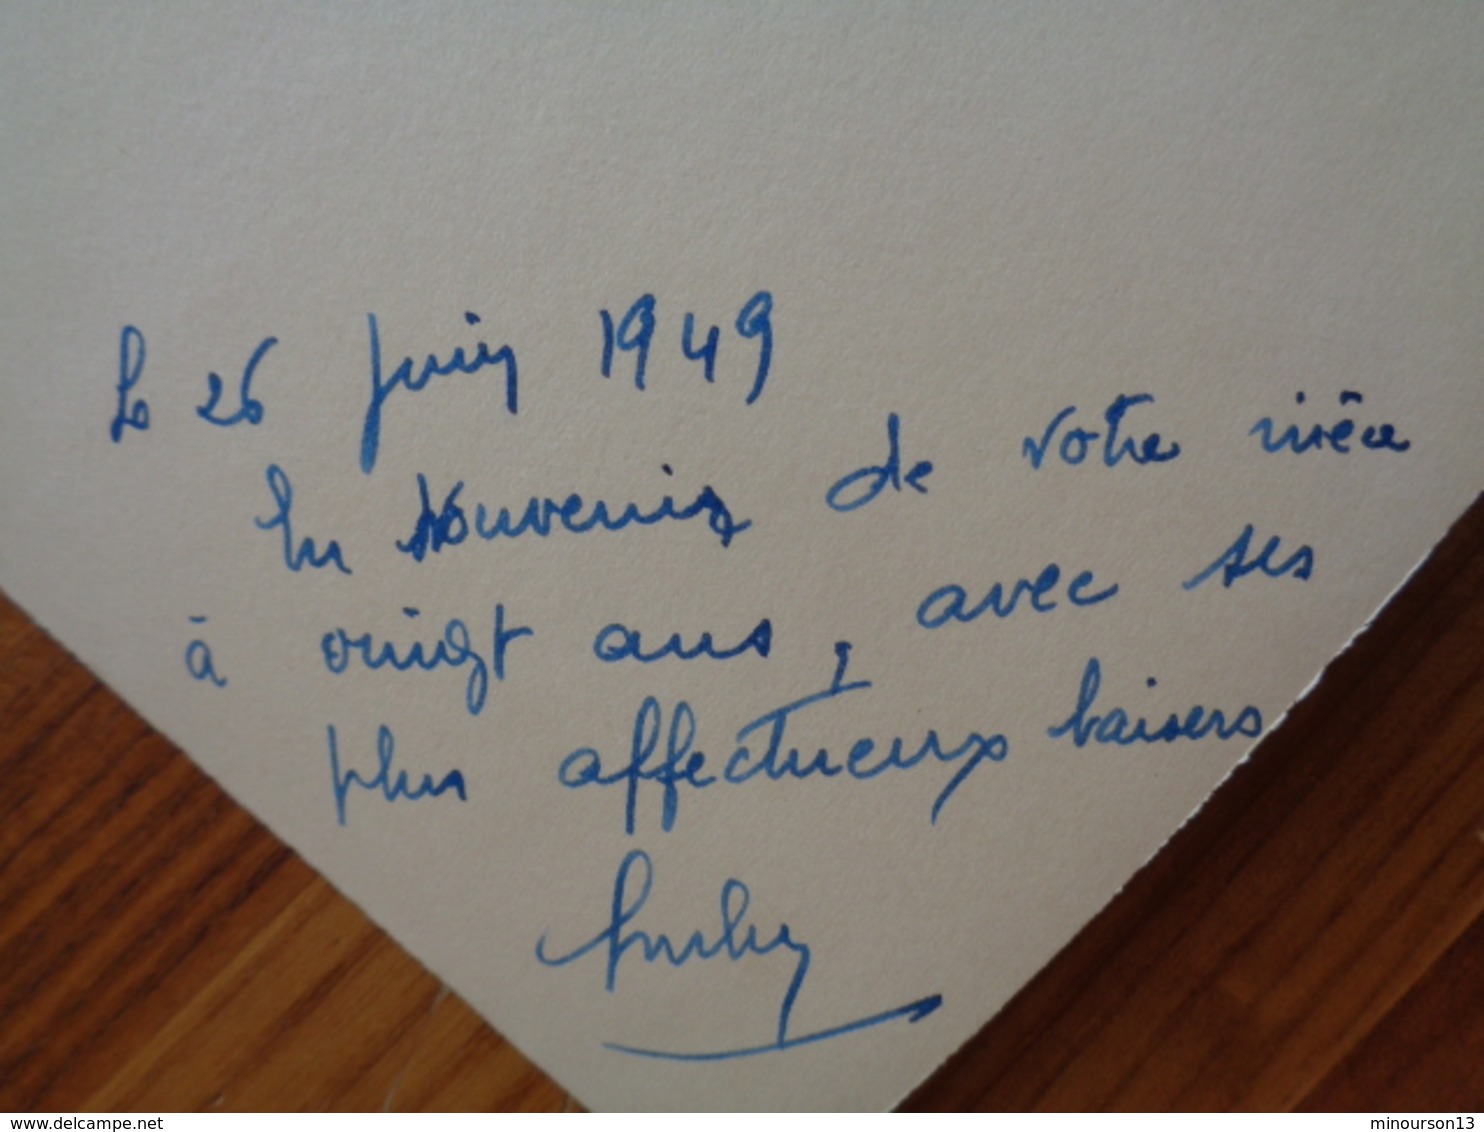 Le 26 juin 1949
En souvenir de votre nièce
à vingt ans, avec ses
plus affectueux baisers
www.delcampe.net
minourson13